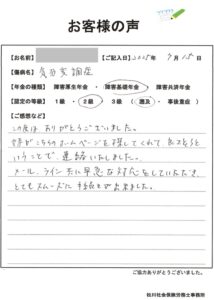 お客様の声
【お名前】 【ご記入日】2025年 9月15日
【傷病名】 気分変調症
【年金の種類】 障害厚生年金・障害基礎年金・障害共済年金
【認定の等級】 1級・2級・3級 (遡及・事後重症)
【ご感想など】
この度は ありがとうございました。
姉がこちらのホームページを探してくれて、
ということで、連絡いたしました。
メール、ライン 共に早急な対応をしていただき、
とてもスムーズに手続きが出来ました。
ご協力ありがとうございました。
松川社会保険労務士事務所